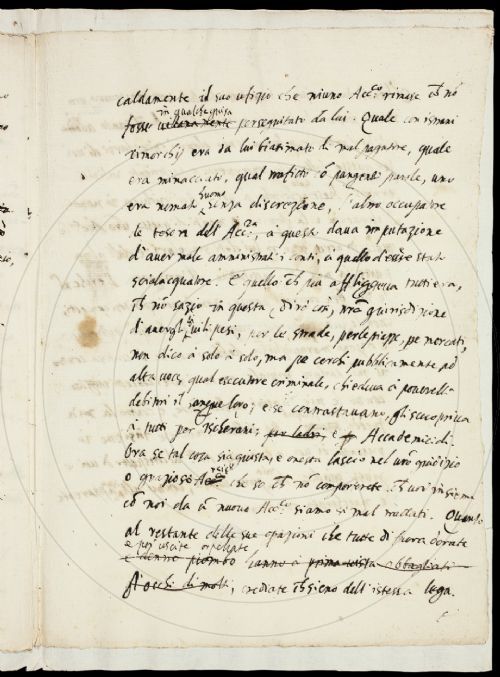 caldamente il suo ufizio che niuno Acc.co rimase ch nò
in qualche guisa
fosse perseguitato da lui. Quale con istrani
rimorchij era da lui biasimato di mal pagatore, quale
era minacciato, qual trafitto cō pungenti parole, uno
huomo
era nomato senza discrezione, l'altro occupatore
le tesoro dell'Acc.a, à questi dava imputazione
d'aver male amministrati i conti, à quello d'essere stato
scialacquatore. E quello ch più affliggeva tutti era,
ch nō sazio in questa, dirò così, giurisdizione
d'avergli vilipesi, per le strade, per le piazze, pe mercati,
non dico à solo à solo, ma pe cerchi pubblicamente, ad
alta voce, qual esecutore criminale, chiedeva a' poverelli
debitori il sangue loro; e se contrastavano, gli scopriva
à tutti per e p Accademici.
Ora se tal cosa sia giusta, e onesta lascio nel vrō giudizio
o graziosi che so ch nō comporterete ch voi insieme
cō noi da ū nuovo Acc.co siamo sì mal trattati. Quanto
al restante delle sue azioni che tutte di fuora dorate
e poi
e dentro piombo hanno a prima vista abbagliati
gl'occhi di molti, crediate ch sieno dell'istessa lega.